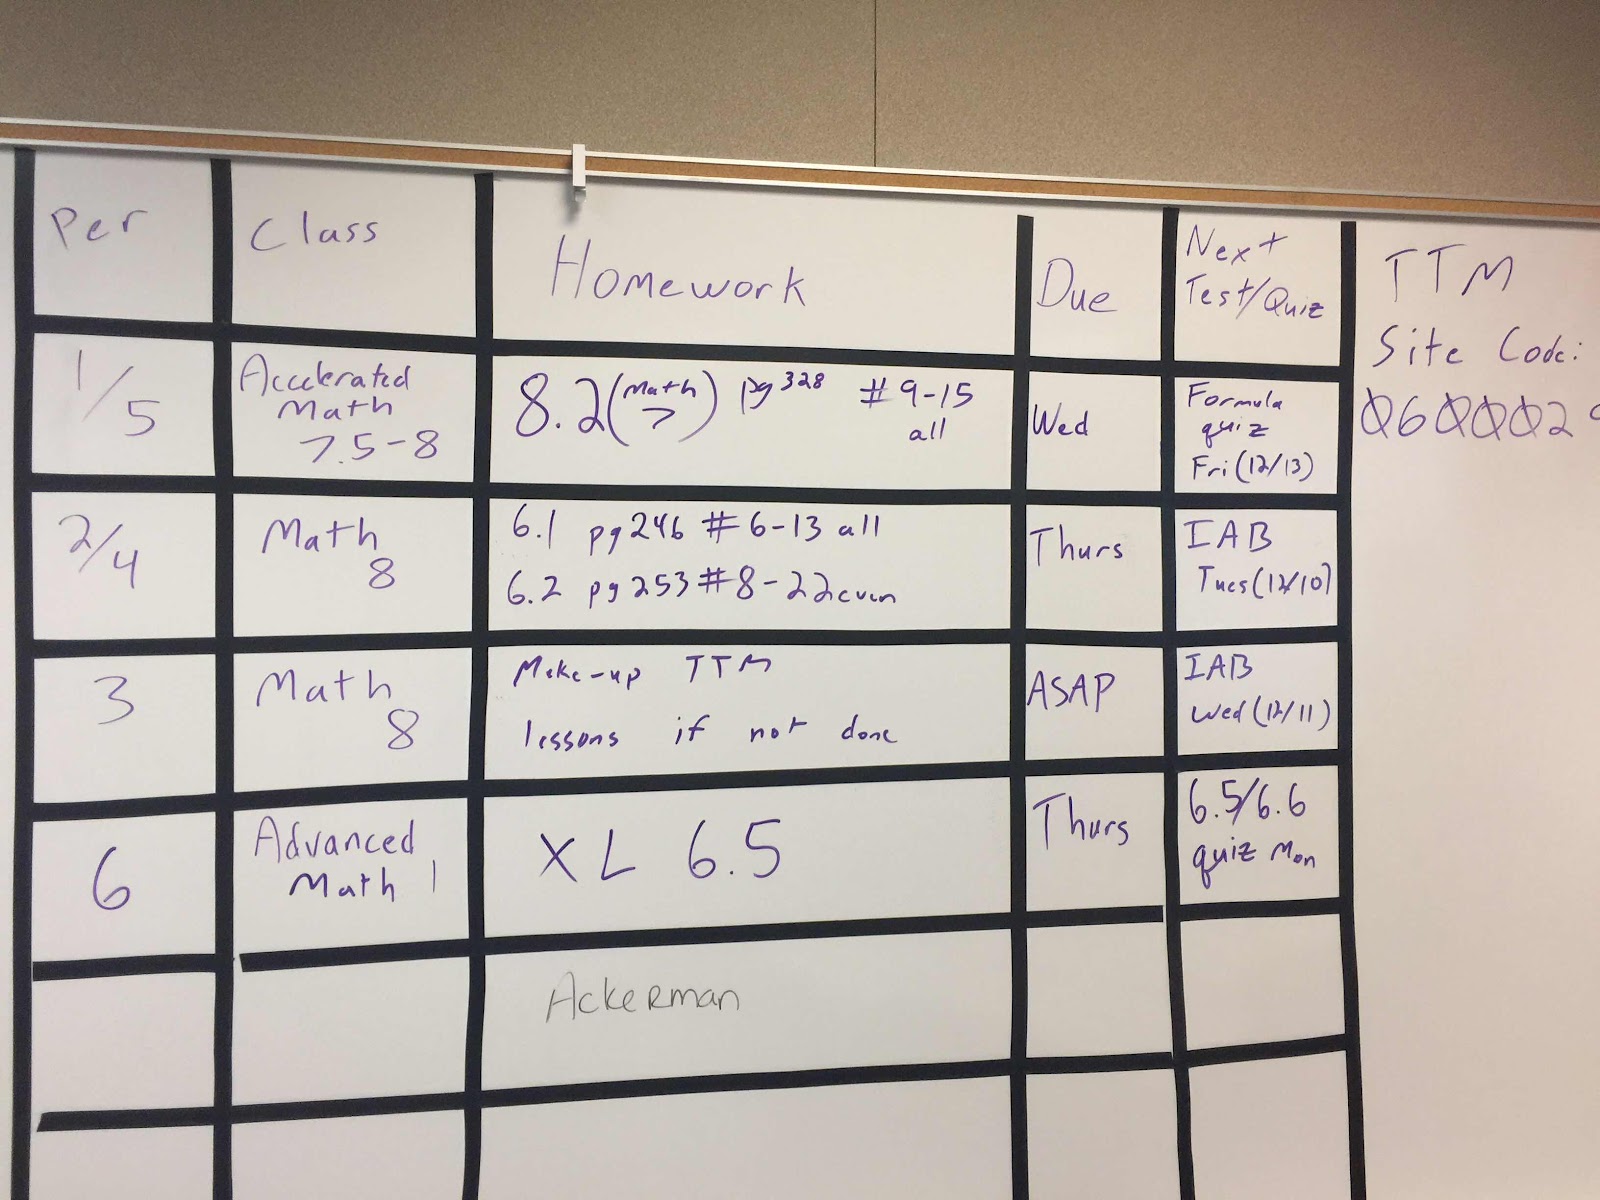 Per Class Homework Due Next Test/Quiz
1/5 Accelerated Math 7.5-8 8.2 (Math 7) pg 328 # 9-15 all Wed Formula quiz Fri (12/13)
2/4 Math 8 6.1 pg 246 # 6-13 all Thurs IAB Tues (12/10)
6.2 pg 253 # 8-22 even
3 Math 8 Make-up TTM ASAP IAB Wed (12/11)
lessons if not done
6 Advanced Math 1 XL 6.5 Thurs 6.5/6.6 quiz Mon
Ackerman
TTM
Site Code:
0600002